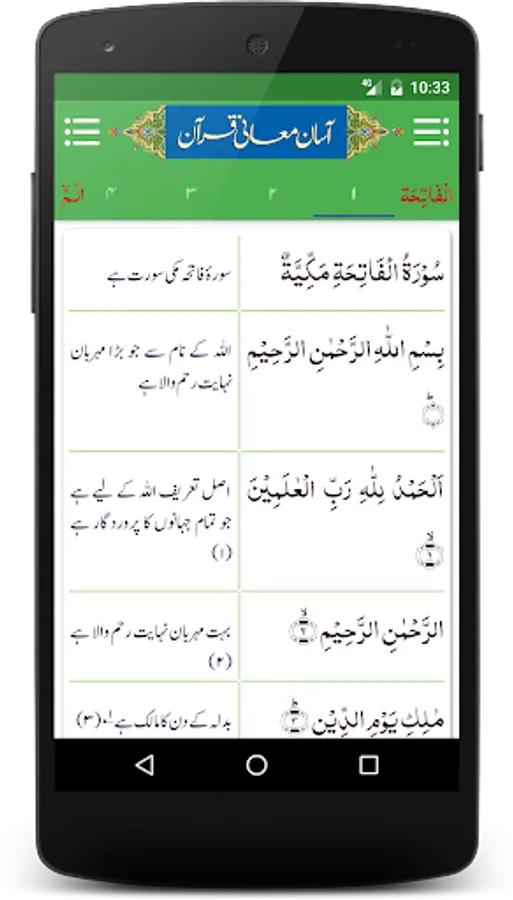 4G 10:33
آسان معانی قرآن
الْفَاتِحَة ۱ ۲ ۳ ۴ الٓمّٓ
سُوْرَةُ الْفَاتِحَةِ مَكِّيَّةٌ
سورۂ فاتحہ مکی سورت ہے
بِسْمِ اللّٰهِ الرَّحْمٰنِ الرَّحِيْمِ
اللہ کے نام سے جو بڑا مہربان
نہایت رحم والا ہے
اَلْحَمْدُ لِلّٰهِ رَبِّ الْعٰلَمِيْنَ
۱
اصل تعریف اللہ کے لیے ہے
جو تمام جہانوں کا پروردگار ہے
(۱)
الرَّحْمٰنِ الرَّحِيْمِ ۲
بہت مہربان نہایت رحم والا ہے
(۲)
مٰلِكِ يَوْمِ الدِّيْنِ ۳
بدلہ کے دن کا مالک ہے ۱؂ (۳)